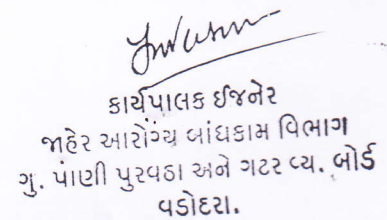 કાર્યપાલક ઈજનેર
જાહેર આરોગ્ય બાંધકામ વિભાગ
ગુ. પાણી પુરવઠા અને ગટર વ્ય. બોર્ડ
વડોદરા.